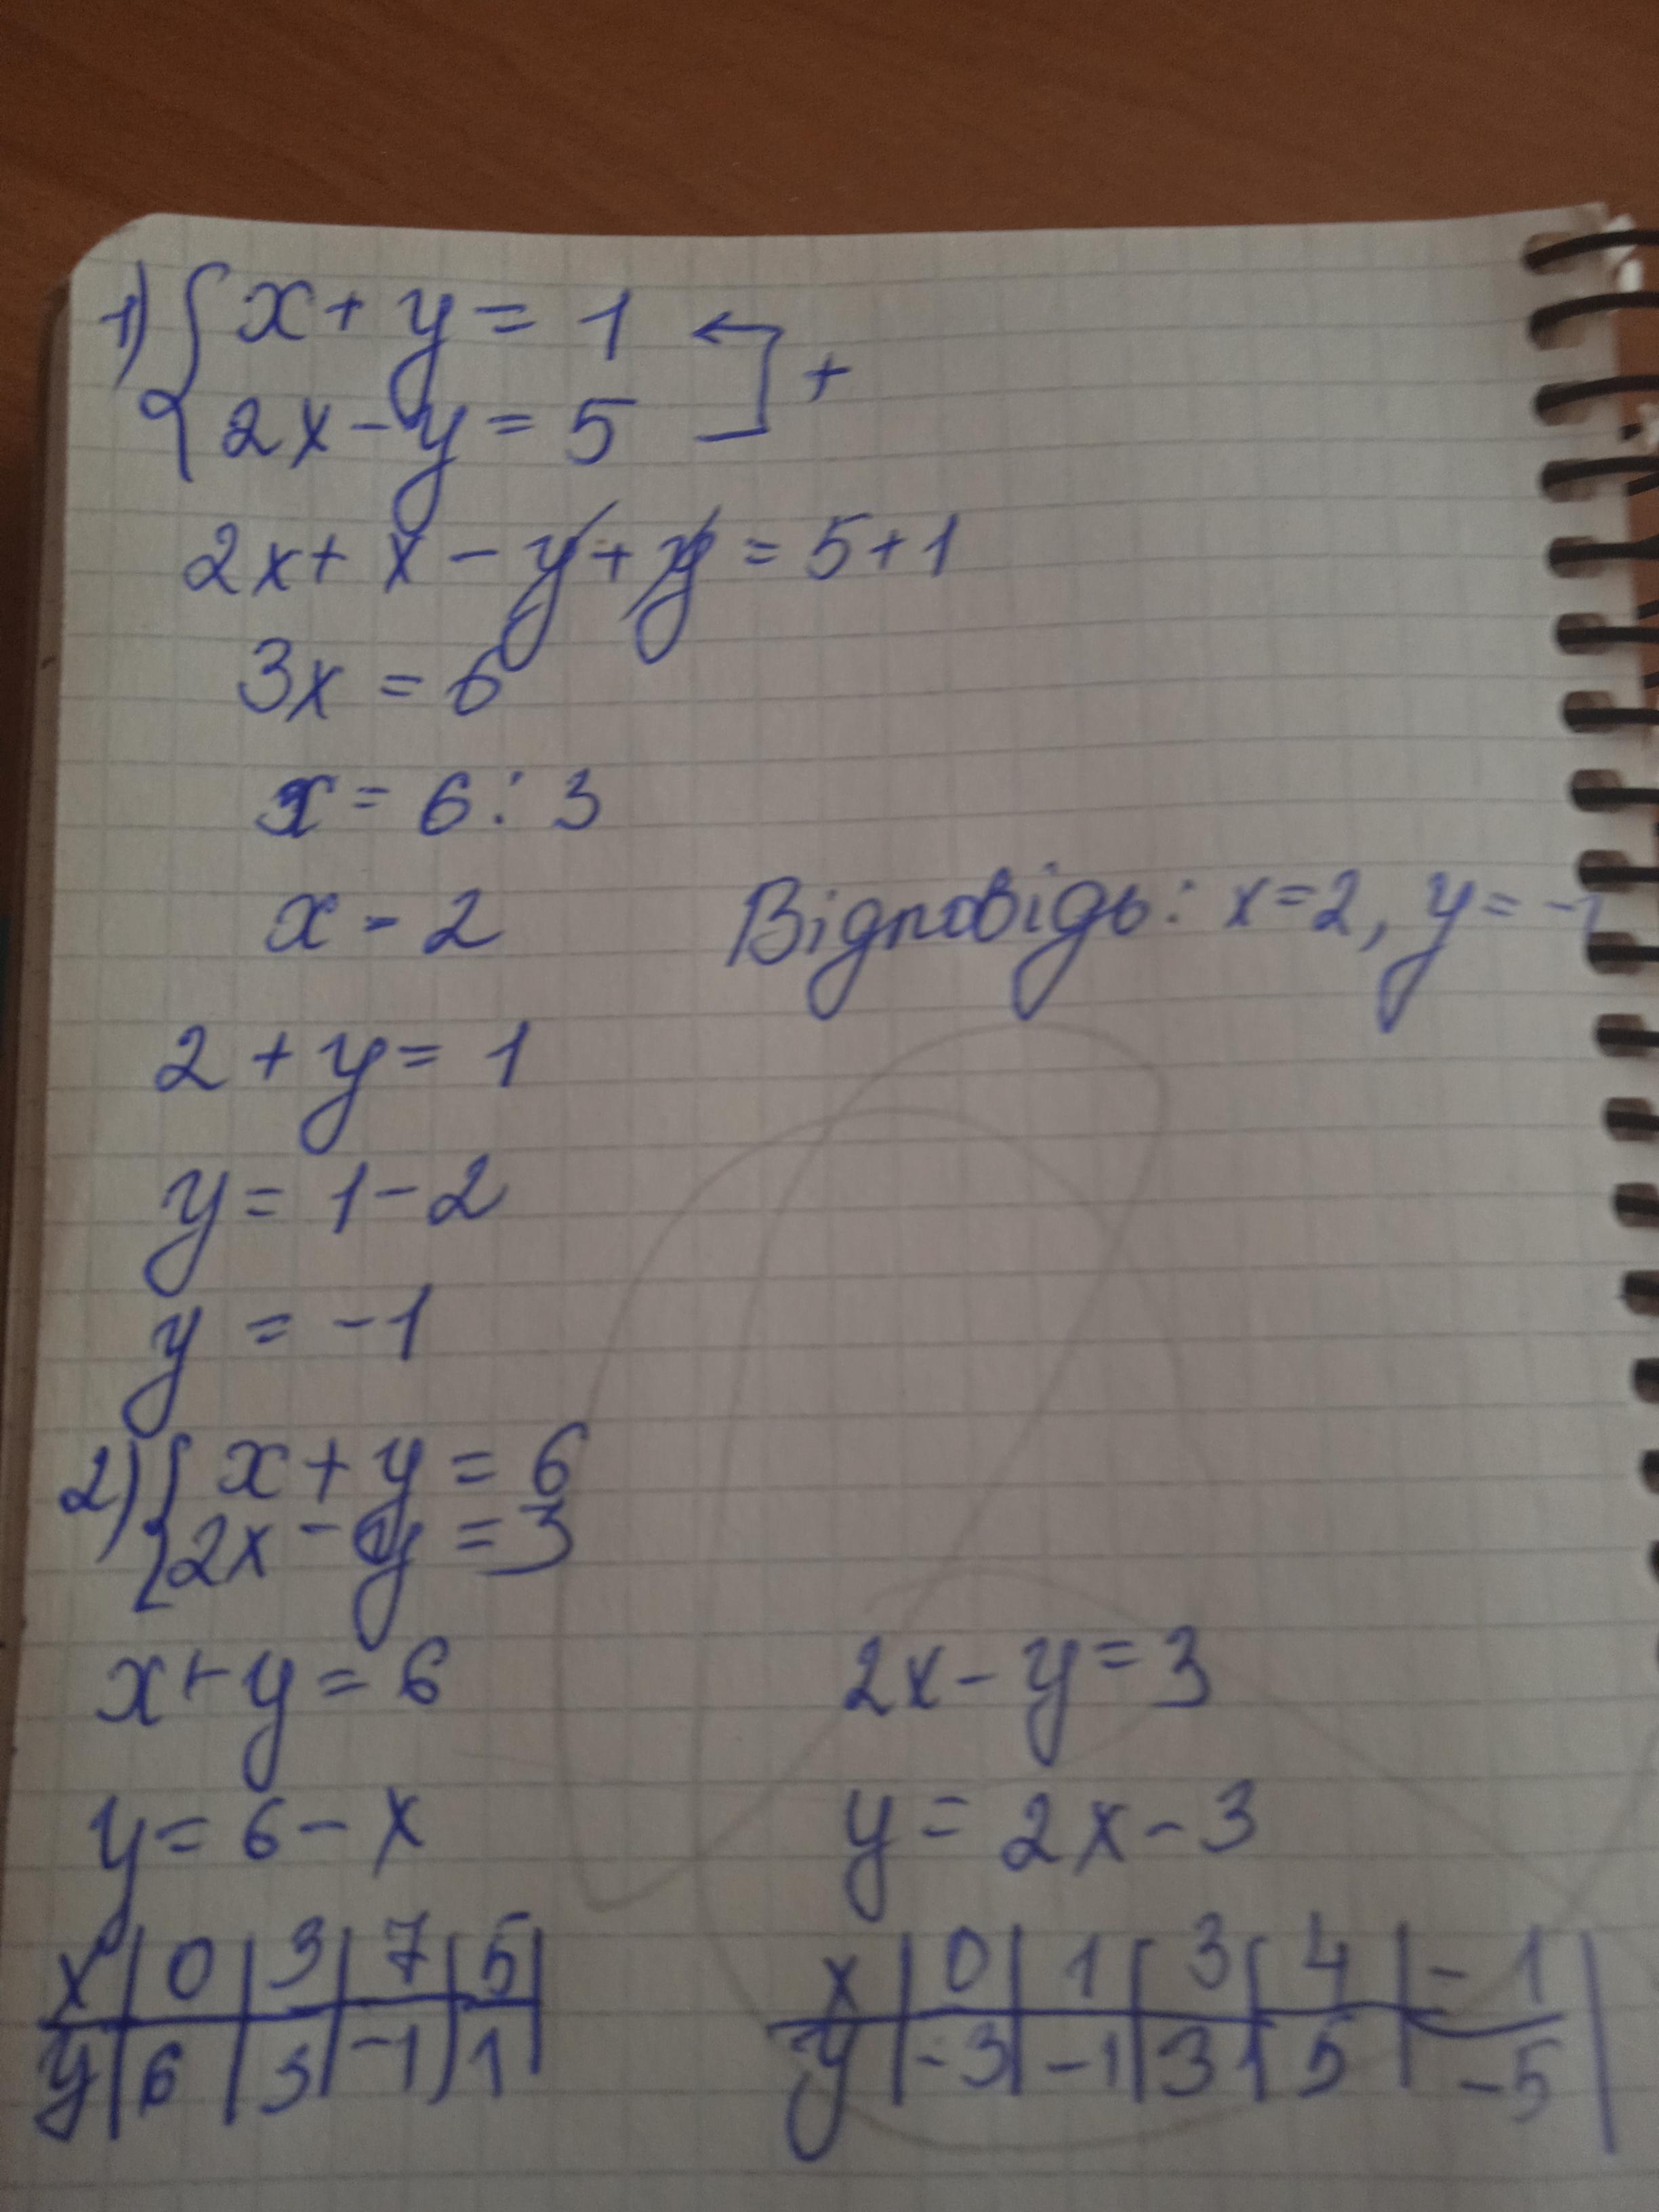 1) { x + y = 1
2x - y = 5 +
2x + x - y + y = 5 + 1
3x = 6
x = 6 : 3
x = 2
Відповідь: x = 2, y = -1
2 + y = 1
y = 1 - 2
y = -1
2) { x + y = 6
2x - y = 3
x + y = 6
2x - y = 3
y = 6 - x
y = 2x - 3
x | 0 | 3 | 7 | 5 |
y | 6 | 3 | -1 | 1 |
x | 0 | 1 | 3 | 4 | -1 |
y | -3 | -1 | 3 | 5 | -5 |